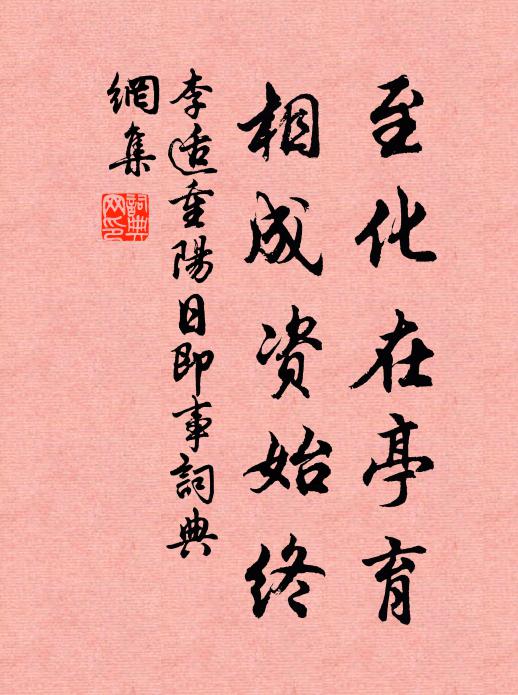 至化在亭育
相成资始终
李适重陽日即事詞典
網集
詞典
网印